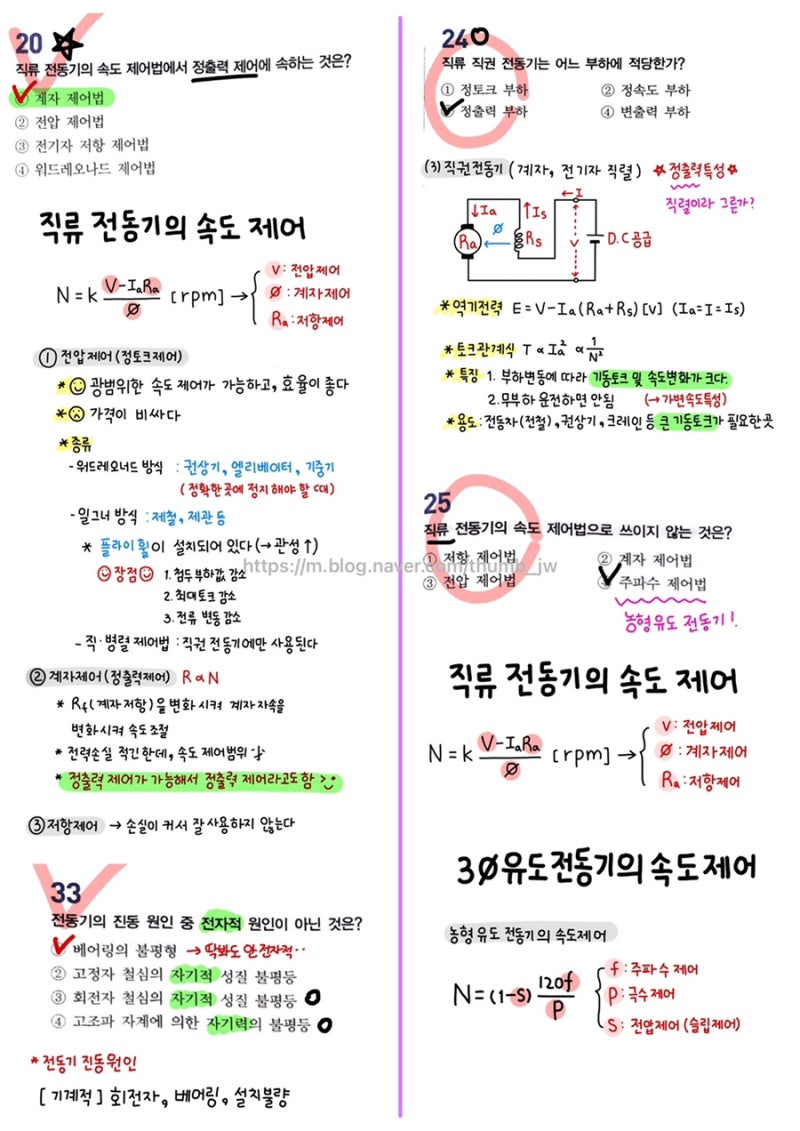 20
직류 전동기의 속도 제어법에서 정출력 제어에 속하는 것은?
① 계자 제어법
② 전압 제어법
③ 전기자 저항 제어법
④ 워드레오나드 제어법
직류 전동기의 속도 제어
N = k (V-IaRa)/Ø [rpm] →
V : 전압제어
Ø : 계자제어
Ra : 저항제어
① 전압제어(정토크제어)
* 광범위한 속도 제어가 가능하고, 효율이 좋다
* 가격이 비싸다
* 종류
- 워드레오너드 방식 : 권상기, 엘리베이터, 기중기
(정확한 곳에 정지해야 할 때)
- 일그너 방식 : 제철, 제관 등
* 플라이휠이 설치되어 있다 (→ 관성↑)
장점 1. 첨두부하값 감소
2. 최대토크 감소
3. 전류 변동 감소
- 직·병렬 제어법 : 직권 전동기에만 사용된다
② 계자제어(정출력제어) R ∝ N
* Rf(계자저항)을 변화시켜 계자자속을
변화시켜 속도조절
* 전력손실 적긴한데, 속도 제어범위 좁
* 정출력 제어가 가능해서 정출력 제어라고도 함
③ 저항제어 → 손실이 커서 잘 사용하지 않는다
33
전동기의 진동 원인 중 전자적 원인이 아닌 것은?
① 베어링의 불평형 → 딱봐도 안 전자적..
② 고정자 철심의 자기적 성질 불평등
③ 회전자 철심의 자기적 성질 불평등
④ 고조파 자계에 의한 자기력의 불평등
* 전동기 진동원인
[기계적] 회전자, 베어링, 설치불량
24
직류 직권 전동기는 어느 부하에 적당한가?
① 정토크 부하 ② 정속도 부하
③ 정출력 부하 ④ 변출력 부하
(3) 직권전동기 (계자, 전기자 직렬) ★정출력특성★
직렬이라 그른가?
←I
↓Ia ↑Is
Ra Ø Rs V D.C공급
* 역기전력 E = V-Ia(Ra+Rs) [V] (Ia=I=Is)
* 토크관계식 T ∝ Ia² ∝ 1/N²
* 특징 1. 부하변동에 따라 기동토크 및 속도변화가 크다.
2. 무부하 운전하면 안됨 (→가변속도특성)
* 용도 : 전동차(전철), 권상기, 크레인 등 큰 기동토크가 필요한 곳
25
직류 전동기의 속도 제어법으로 쓰이지 않는 것은?
① 저항 제어법 ② 계자 제어법
③ 전압 제어법 ④ 주파수 제어법
https://m.blog.naver.com/thump_jw
농형유도 전동기!
직류 전동기의 속도 제어
N = k (V-IaRa)/Ø [rpm] →
V : 전압제어
Ø : 계자제어
Ra : 저항제어
3Ø유도전동기의 속도제어
농형 유도 전동기의 속도제어
N = (1-S) 120f/P
f : 주파수 제어
P : 극수 제어
S : 전압제어 (슬립제어)